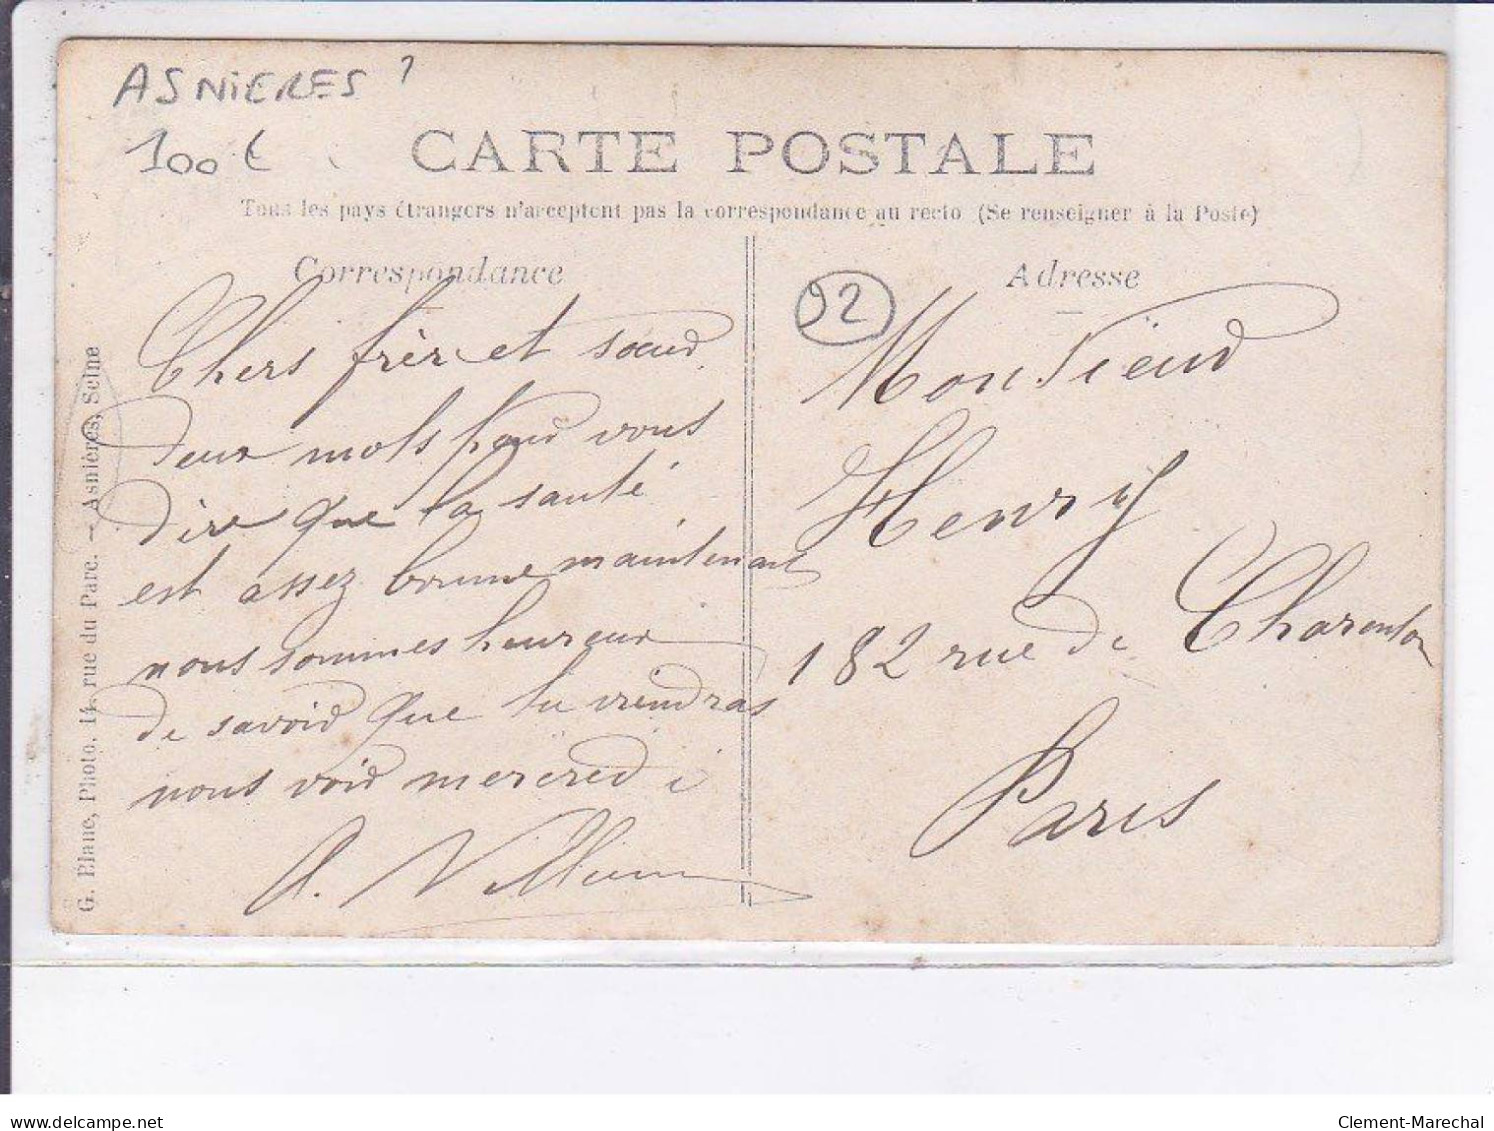 ASNIERES ?
100 €
CARTE POSTALE
Tous les pays étrangers n'acceptent pas la correspondance au recto (Se renseigner à la Poste)
Correspondance
Chers frère et sœur
deux mots pour vous
dire que la santé
est assez bonne maintenant
nous sommes heureux
de savoir que tu viendras
nous voir mercredi
A.
Adresse
92
Monsieur
Henry
182 rue de Charenton
Paris
G. Blanc, Photo, 14, rue du Parc. — Asnières, Seine
www.delcampe.net
Clement-Marechal